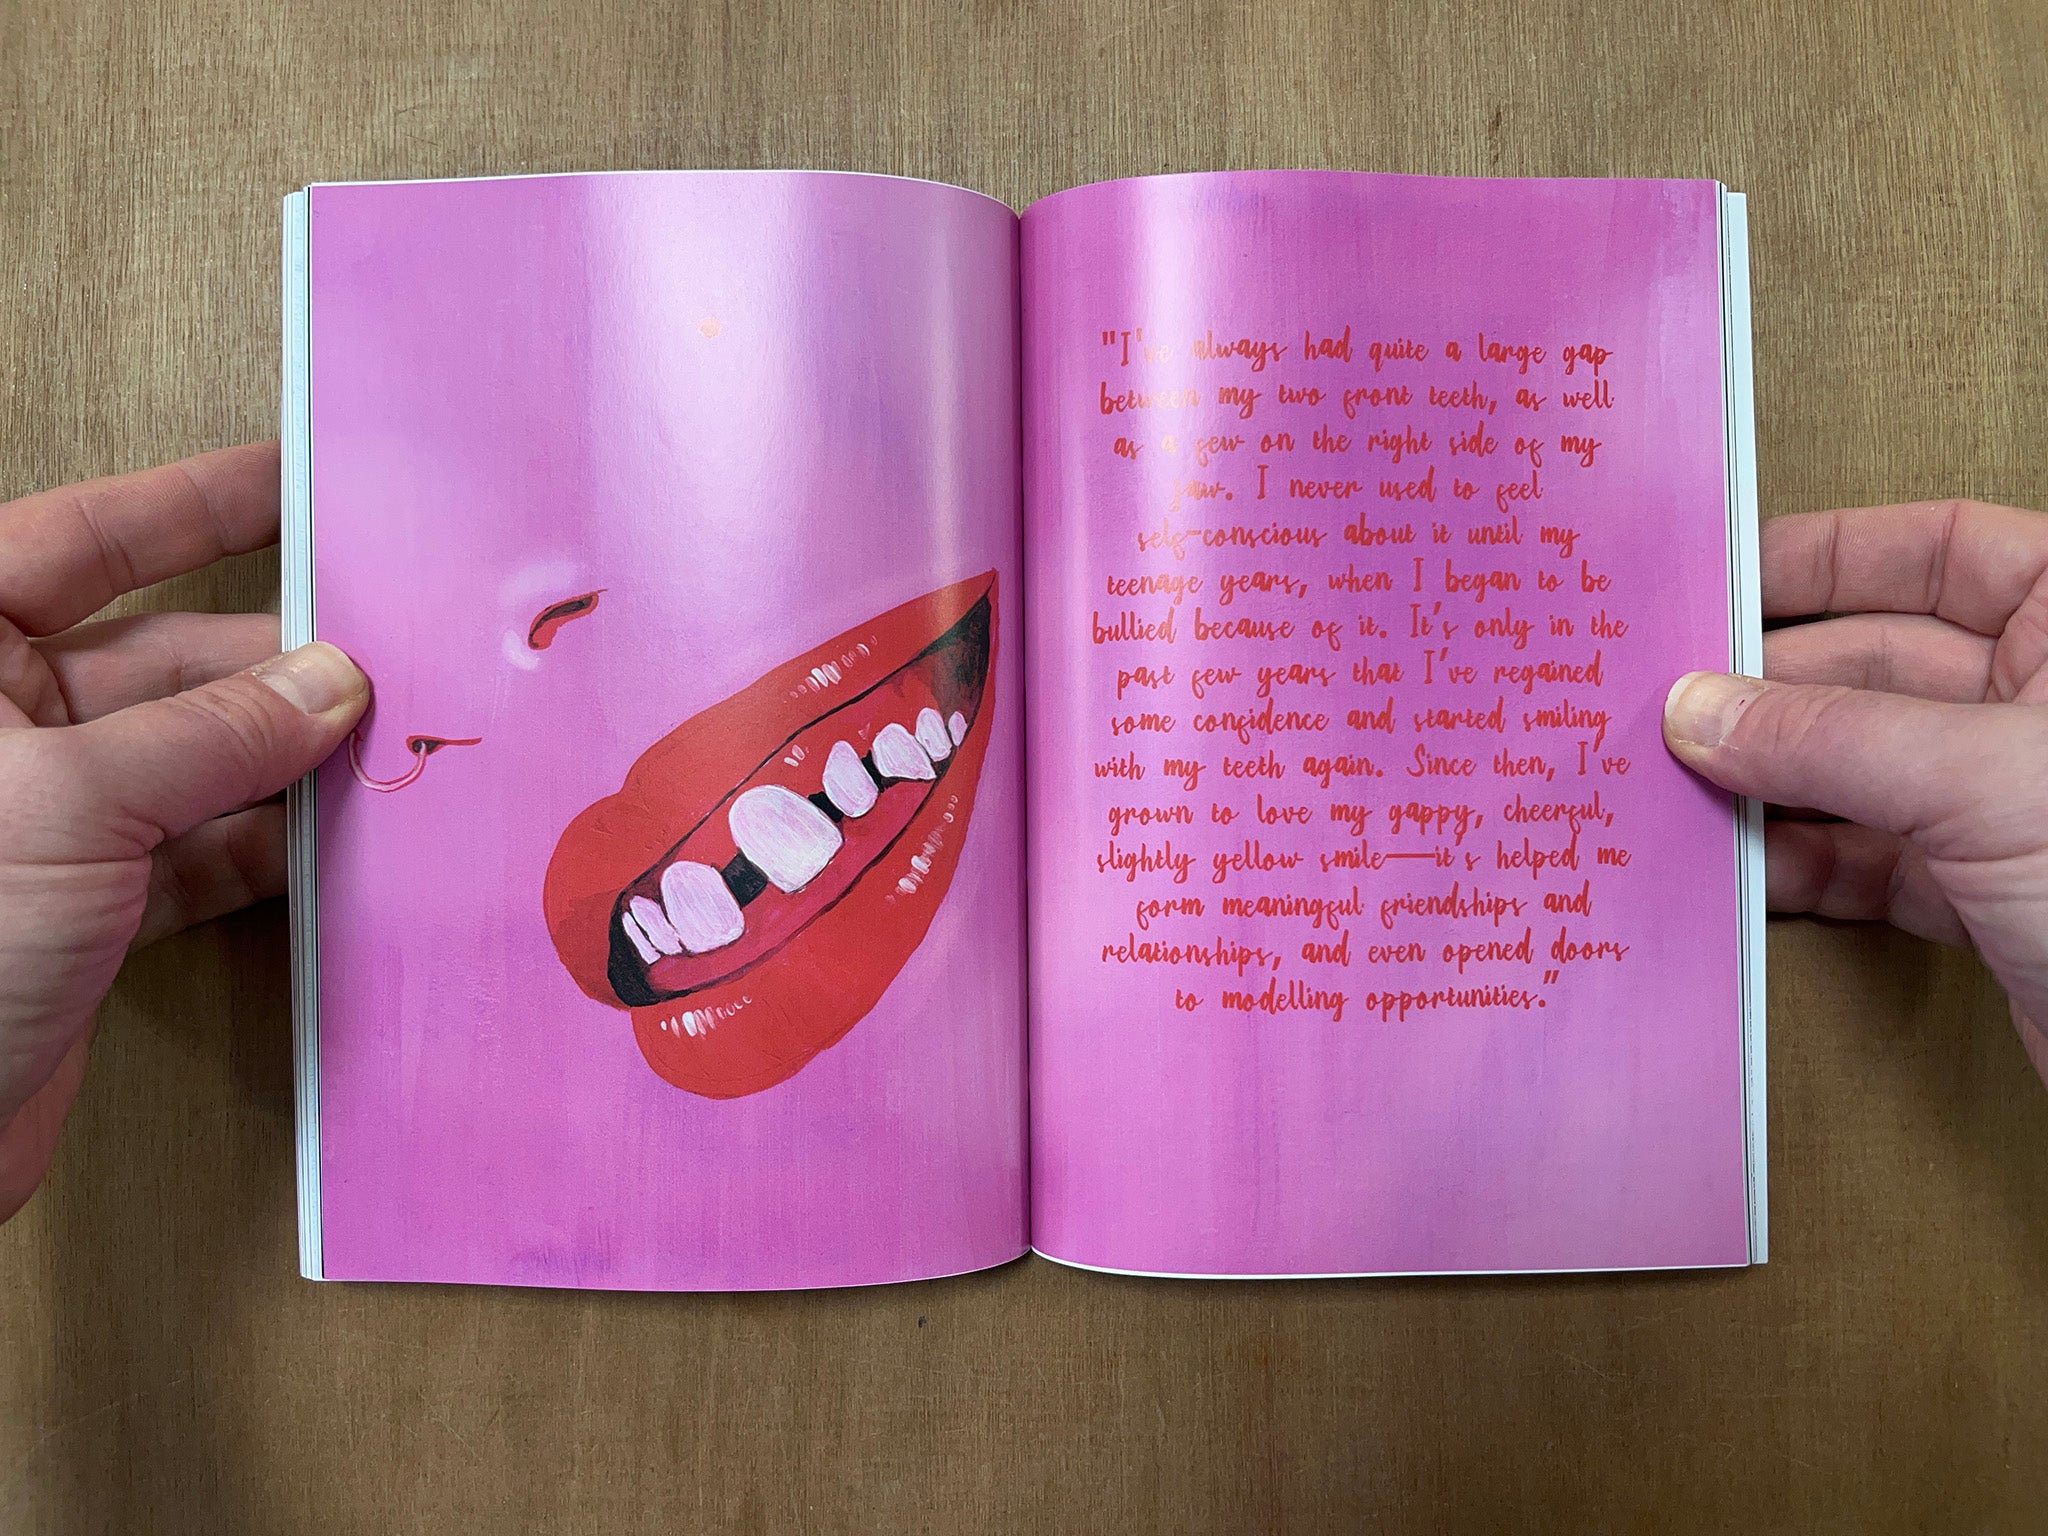 "I've always had quite a large gap
between my two front teeth, as well
as a few on the right side of my
jaw. I never used to feel
self-conscious about it until my
teenage years, when I began to be
bullied because of it. It's only in the
past few years that I've regained
some confidence and started smiling
with my teeth again. Since then, I've
grown to love my gappy, cheerful,
slightly yellow smile—it's helped me
form meaningful friendships and
relationships, and even opened doors
to modelling opportunities."